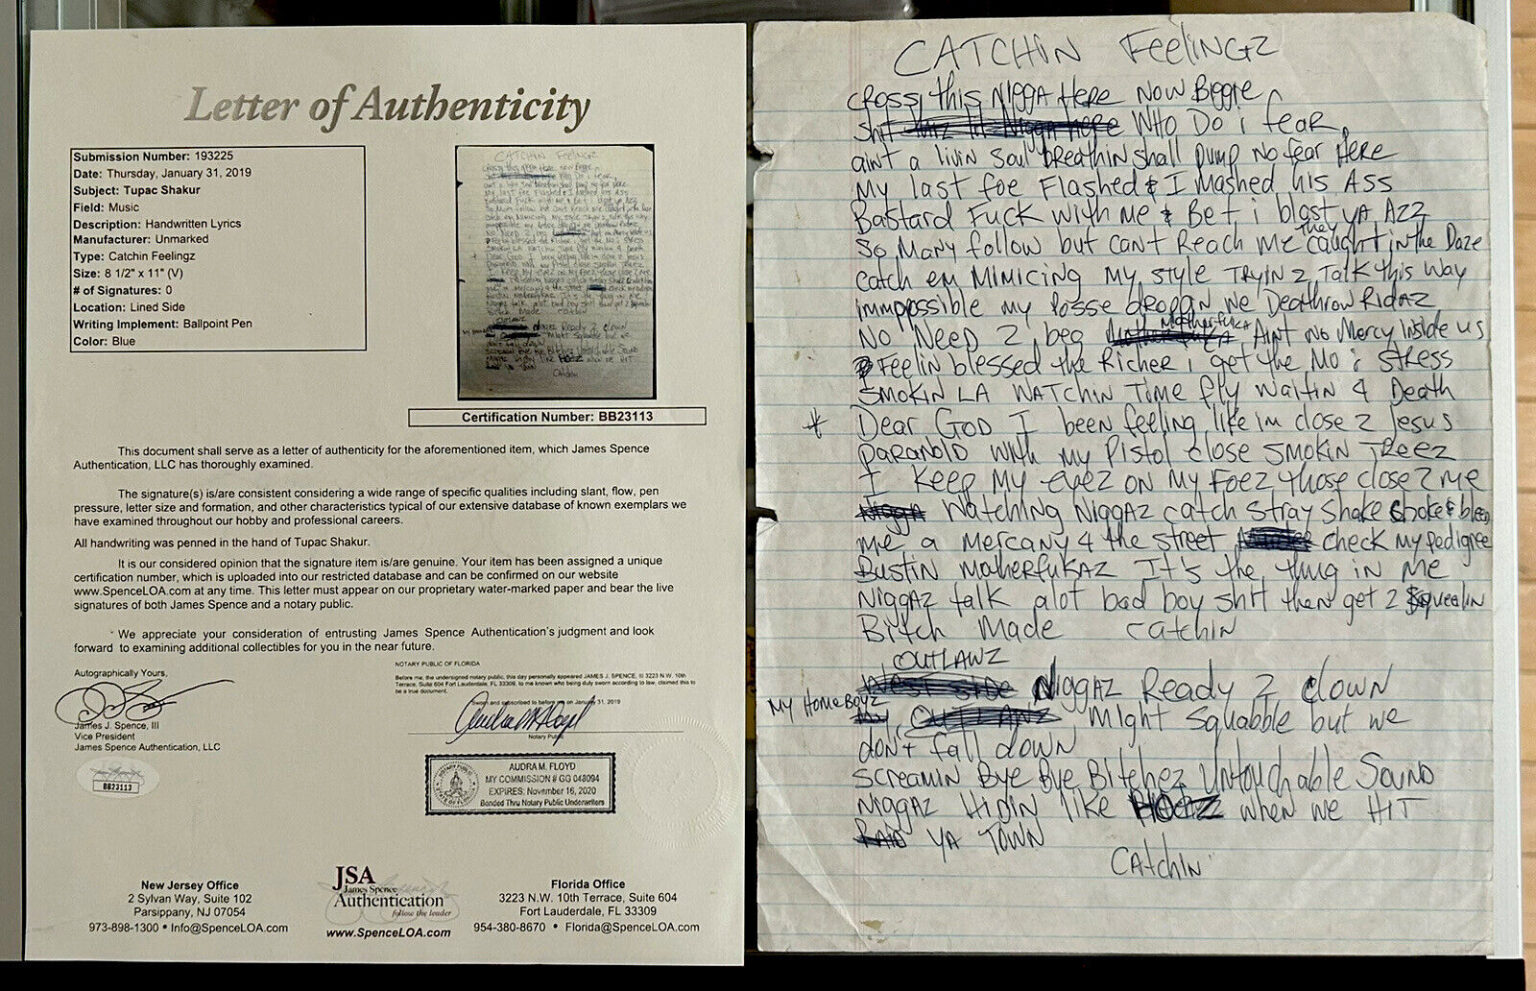 Letter of Authenticity
Submission Number: 193225
Date: Thursday, January 31, 2019
Subject: Tupac Shakur
Field: Music
Description: Handwritten Lyrics
Manufacturer: Unmarked
Type: Catchin Feelingz
Size: 8 1/2" x 11" (V)
# of Signatures: 0
Location: Lined Side
Writing Implement: Ballpoint Pen
Color: Blue
Certification Number: BB23113
This document shall serve as a letter of authenticity for the aforementioned item, which James Spence
Authentication, LLC has thoroughly examined.
The signature(s) is/are consistent considering a wide range of specific qualities including slant, flow, pen
pressure, letter size and formation, and other characteristics typical of our extensive database of known exemplars we
have examined throughout our hobby and professional careers.
All handwriting was penned in the hand of Tupac Shakur.
It is our considered opinion that the signature item is/are genuine. Your item has been assigned a unique
certification number, which is uploaded into our restricted database and can be confirmed on our website
www.SpenceLOA.com at any time. This letter must appear on our proprietary water-marked paper and bear the live
signatures of both James Spence and a notary public.
We appreciate your consideration of entrusting James Spence Authentication's judgment and look
forward to examining additional collectibles for you in the near future.
Autographically Yours,
James J. Spence, III
Vice President
James Spence Authentication, LLC
BB23113
NOTARY PUBLIC OF FLORIDA
Before me, the undersigned notary public, this day personally appeared JAMES J. SPENCE, III 3223 N.W. 10th
Terrace, Suite 604 Fort Lauderdale, FL 33309, to me known who being duly sworn according to law, claimed this to
be a true document.
Sworn and subscribed to before me on January 31, 2019
Notary Public
AUDRA M. FLOYD
MY COMMISSION # GG 048094
EXPIRES: November 16, 2020
Bonded Thru Notary Public Underwriters
New Jersey Office
2 Sylvan Way, Suite 102
Parsippany, NJ 07054
973-898-1300 • Info@SpenceLOA.com
JSA
James Spence
Authentication
follow the leader
www.SpenceLOA.com
Florida Office
3223 N.W. 10th Terrace, Suite 604
Fort Lauderdale, FL 33309
954-380-8670 • Florida@SpenceLOA.com
CATCHIN FeelinGZ
cross this NiggA Here NOW Biggie
shit WHO DO i fear
aint a livin soul breathin shall pump NO fear Here
My last foe Flashed & I Mashed his ASS
Bastard Fuck with me & Bet i blast ya AZZ
So Many follow but cant Reach me they caught in the Daze
catch em MiMiCiNg My style TRYIN 2 Talk this way
immpossible my posse droppin we Deathrow RidAZ
No Need 2 beg Motherfuka Aint no Mercy inside us
Feelin blessed the Richer i get the Mo i stress
SMOKIN LA WATCHIN TIME fly waitin 4 Death
* Dear GOD I been feeling like im close 2 jesus
PARANOID with my Pistol close SMOKIN TReeZ
I keep My eyez ON My Foez those close 2 me
Nigga Watching NiggAZ catch stray shake choke & bleed
me a Mercany 4 the street check my pedigree
Bustin MotherfukAZ It's the thug in Me
NiggAZ talk alot bad boy shit then get 2 squealin
Bitch Made catchin
OUTLAWZ
West side NiggAZ Ready 2 clown
My HomeBoyz OUTLAWZ Might Squabble but we
don't fall down
SCREAMIN Bye Bye BitcheZ Untouchable Sound
NiggAZ HIDIN like HOeZ when we HIT
Raid YA TOWN
CAtchiN